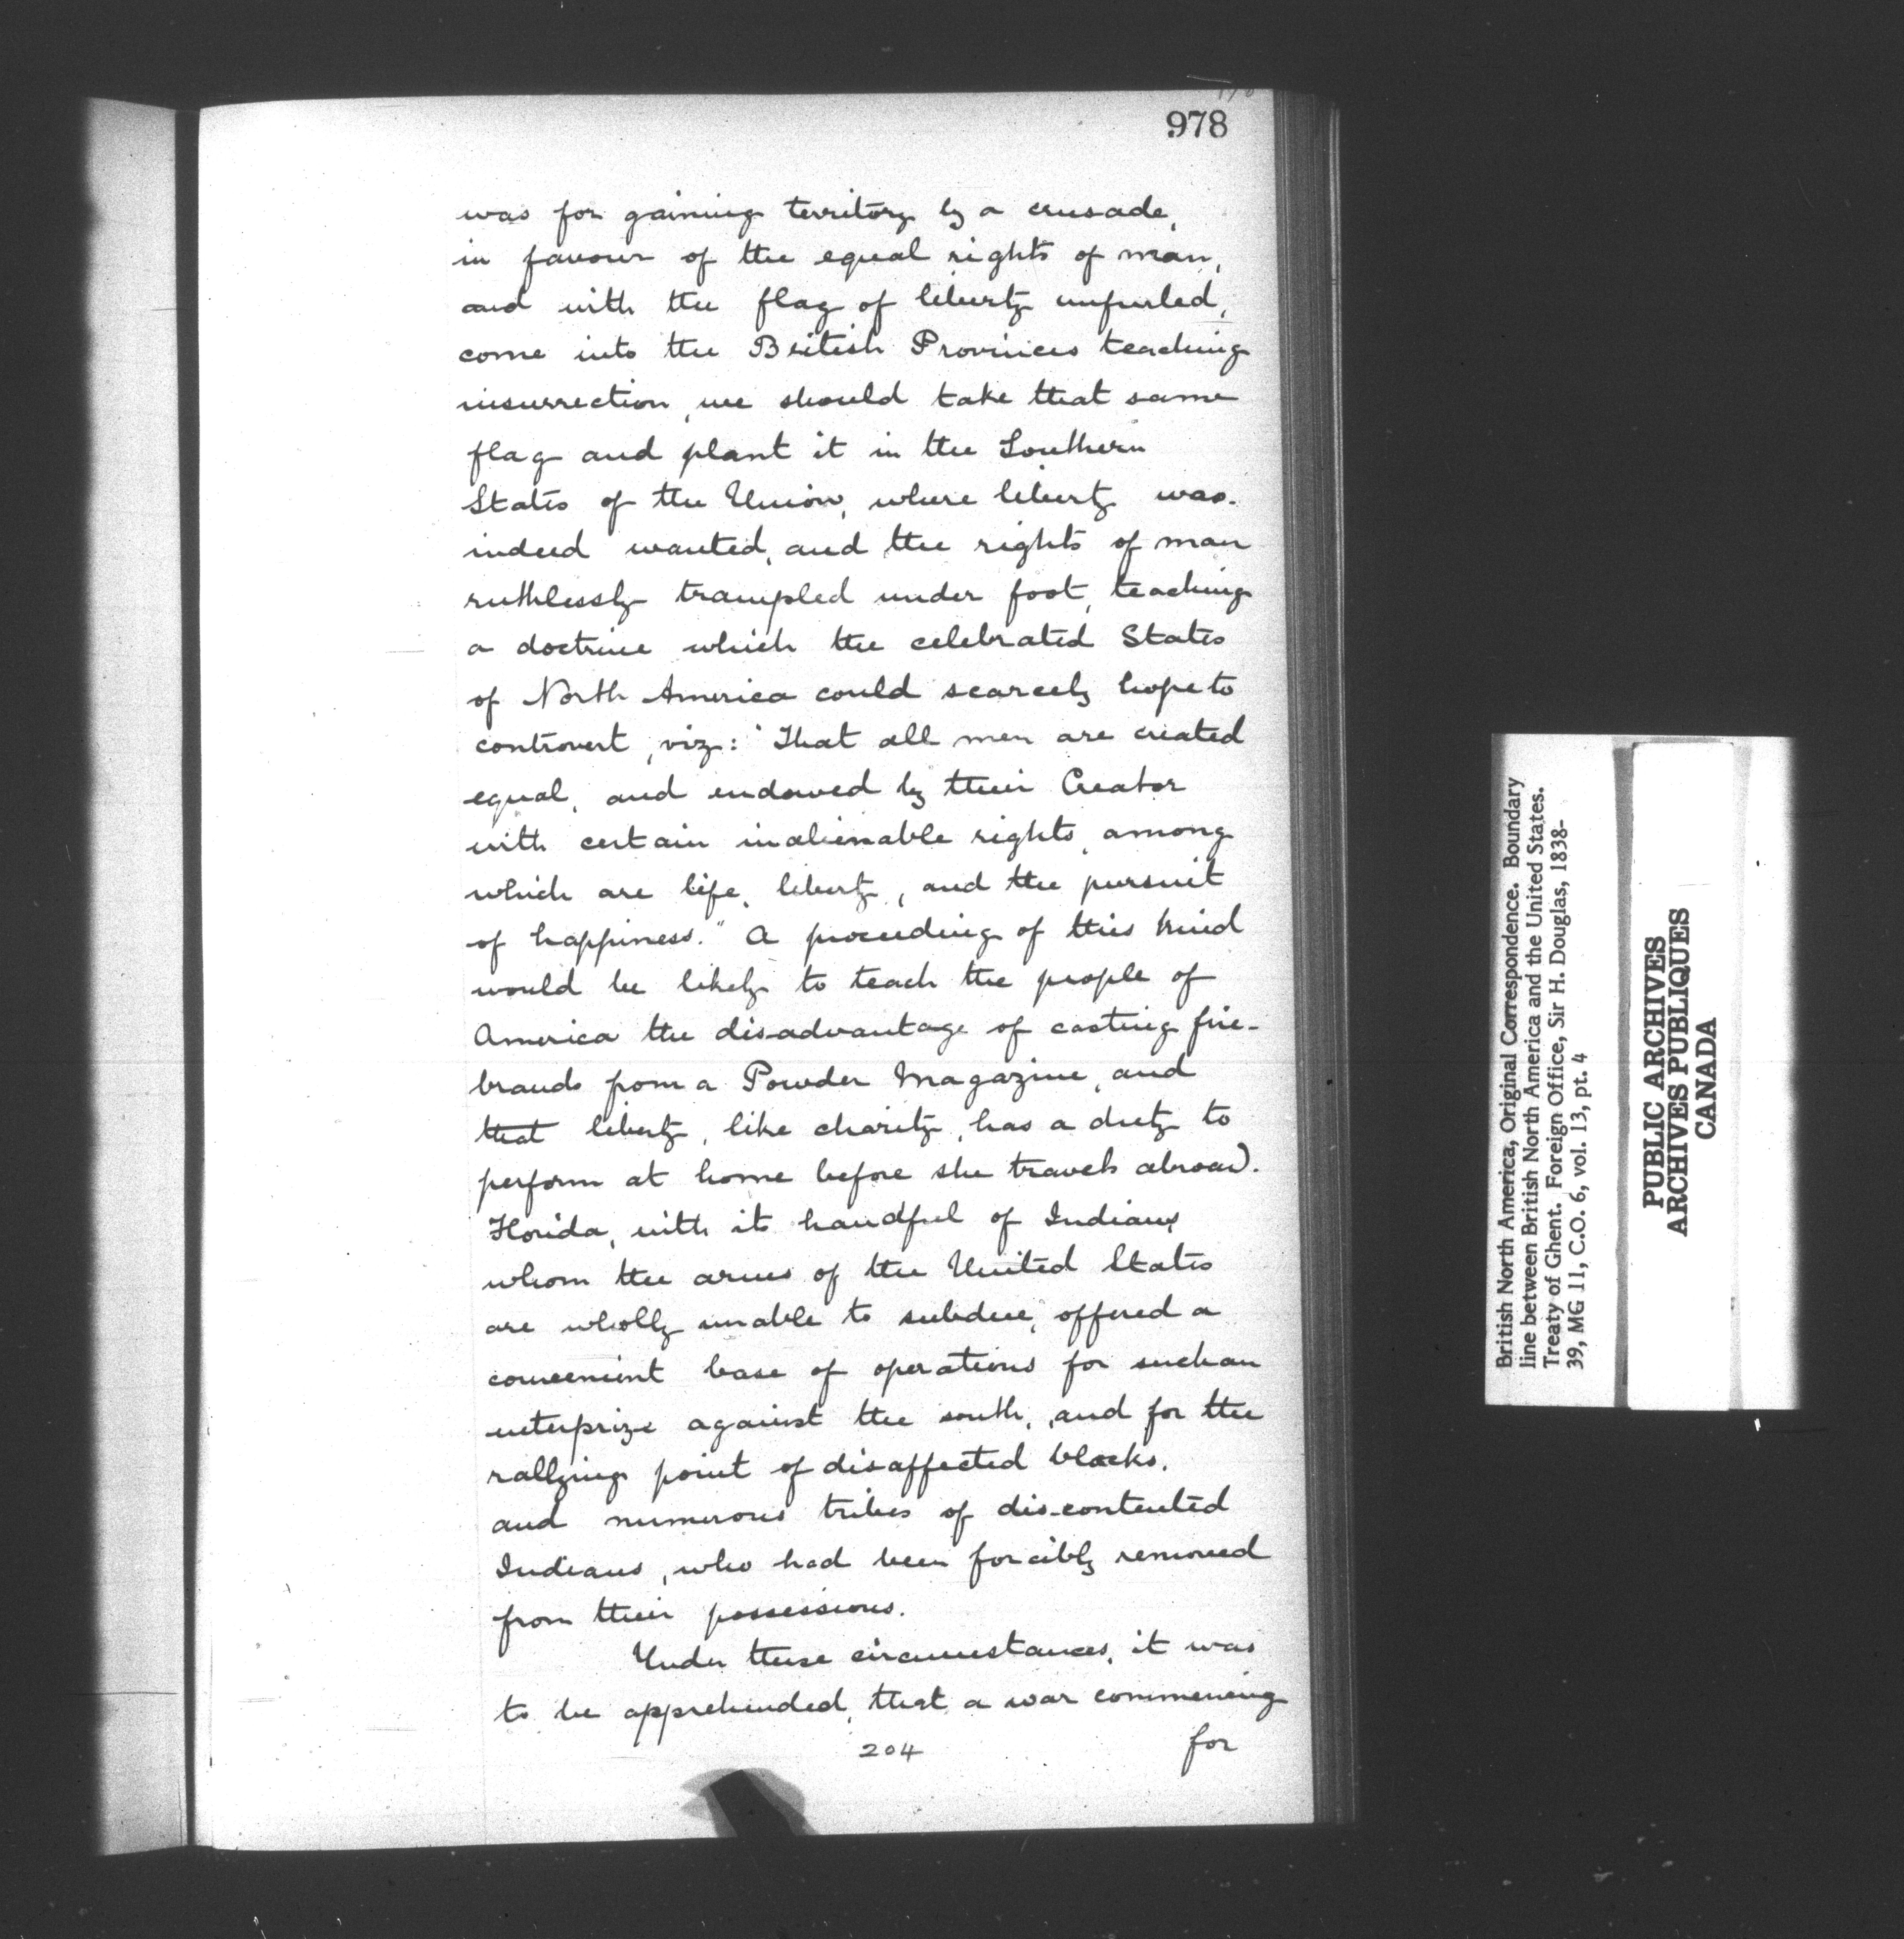 978
was for gaining territory by a crusade,
in favour of the equal rights of man,
and with the flag of liberty unfurled,
come into the British Provinces teaching
insurrection, we should take that same
flag and plant it in the Southern
States of the Union, where liberty was
indeed wanted, and the rights of man
ruthlessly trampled under foot, teaching
a doctrine which the celebrated States
of North America could scarcely hope to
controvert, viz: "That all men are created
equal, and endowed by their Creator
with certain inalienable rights, among
which are life, liberty, and the pursuit
of happiness." A proceeding of this kind
would be likely to teach the people of
America the disadvantage of casting fire-
brands from a Powder Magazine, and
that liberty, like charity, has a duty to
perform at home before she travels abroad.
Florida, with its handful of Indians,
whom the arms of the United States
are wholly unable to subdue, offered a
convenient base of operations for such an
enterprize against the south, and for the
rallying point of disaffected blacks,
and numerous tribes of dis-contented
Indians, who had been forcibly removed
from their possessions.
Under these circumstances, it was
to be apprehended, that a war commencing
204 for
British North America, Original Correspondence. Boundary
line between British North America and the United States.
Treaty of Ghent. Foreign Office, Sir H. Douglas, 1838-
39, MG 11, C.O. 6, vol. 13, pt. 4
PUBLIC ARCHIVES
ARCHIVES PUBLIQUES
CANADA